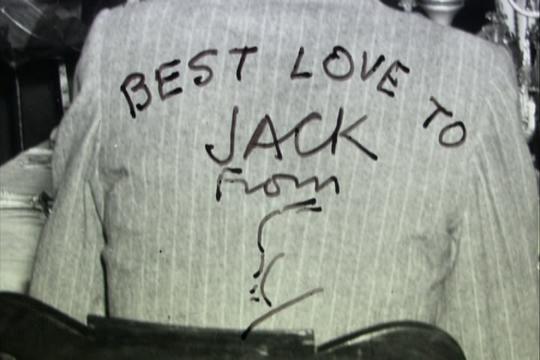 BEST LOVE TO
JACK
From